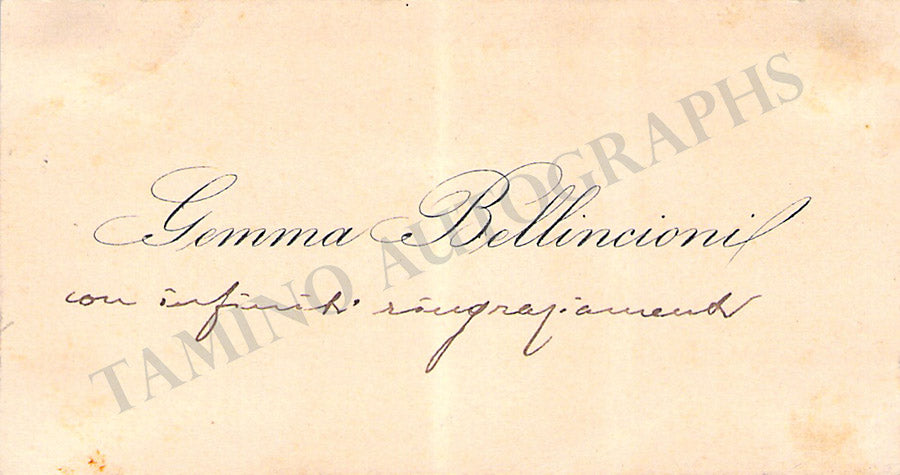 Gemma Bellincioni
con infiniti ringraziamenti
TAMINO AUTOGRAPHS